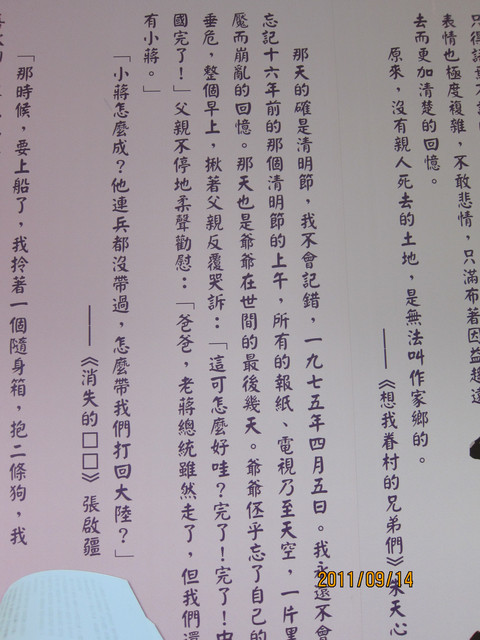 表情也極度複雜，不敢悲情，只滿布著因益趨遠
去而更加清楚的回憶。
原來，沒有親人死去的土地，是無法叫作家鄉的。
——《想我眷村的兄弟們》朱天心
那天的確是清明節，我不會記錯，一九七五年四月五日。我永遠不會
忘記十六年前的那個清明節的上午，所有的報紙、電視乃至天空，一片黑
魘而崩亂的回憶。那天也是爺爺在世間的最後幾天。爺爺似乎忘了自己的
垂危，整個早上，揪著父親反覆哭訴：「這可怎麼好哇？完了！完了！中
國完了！」父親不停地柔聲勸慰：「爸爸，老蔣總統雖然走了，但我們還
有小蔣。」
「小蔣怎麼成？他連兵都沒帶過，怎麼帶我們打回大陸？」
——《消失的□□》張啟疆
「那時候，要上船了，我拎著一個隨身箱，抱二條狗，我
2011/09/14